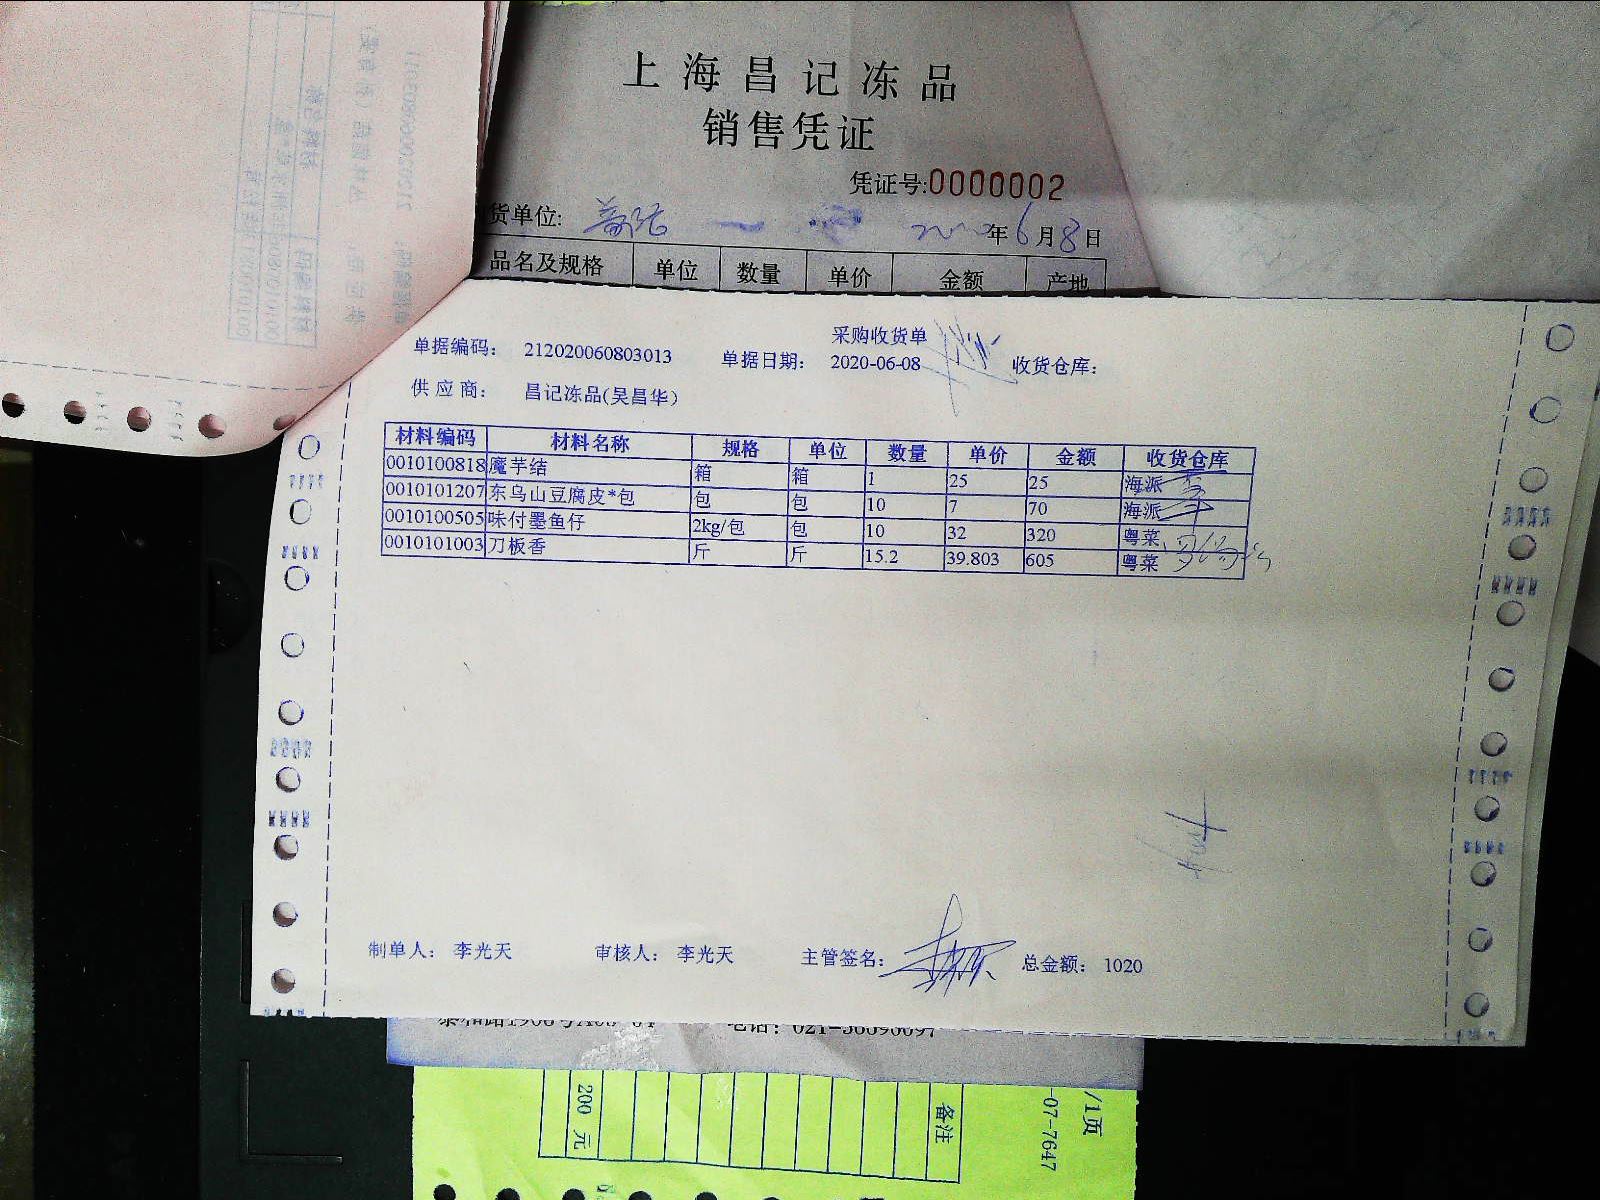 上海昌记冻品
销售凭证
凭证号:0000002
货单位: 年6月8日
品名及规格 单位 数量 单价 金额 产地
采购收货单
单据编码： 212020060803013 单据日期： 2020-06-08 收货仓库：
供应商： 昌记冻品(吴昌华)
材料编码 材料名称 规格 单位 数量 单价 金额 收货仓库
0010100818 魔芋结 箱 箱 1 25 25 海派
0010101207 东乌山豆腐皮*包 包 包 10 7 70 海派
0010100505 味付墨鱼仔 2kg/包 包 10 32 320 粤菜
0010101003 刀板香 斤 斤 15.2 39.803 605 粤菜
制单人： 李光天 审核人： 李光天 主管签名： 总金额： 1020
电话：021-56090097
200 元
备注
-07-7647
/1页